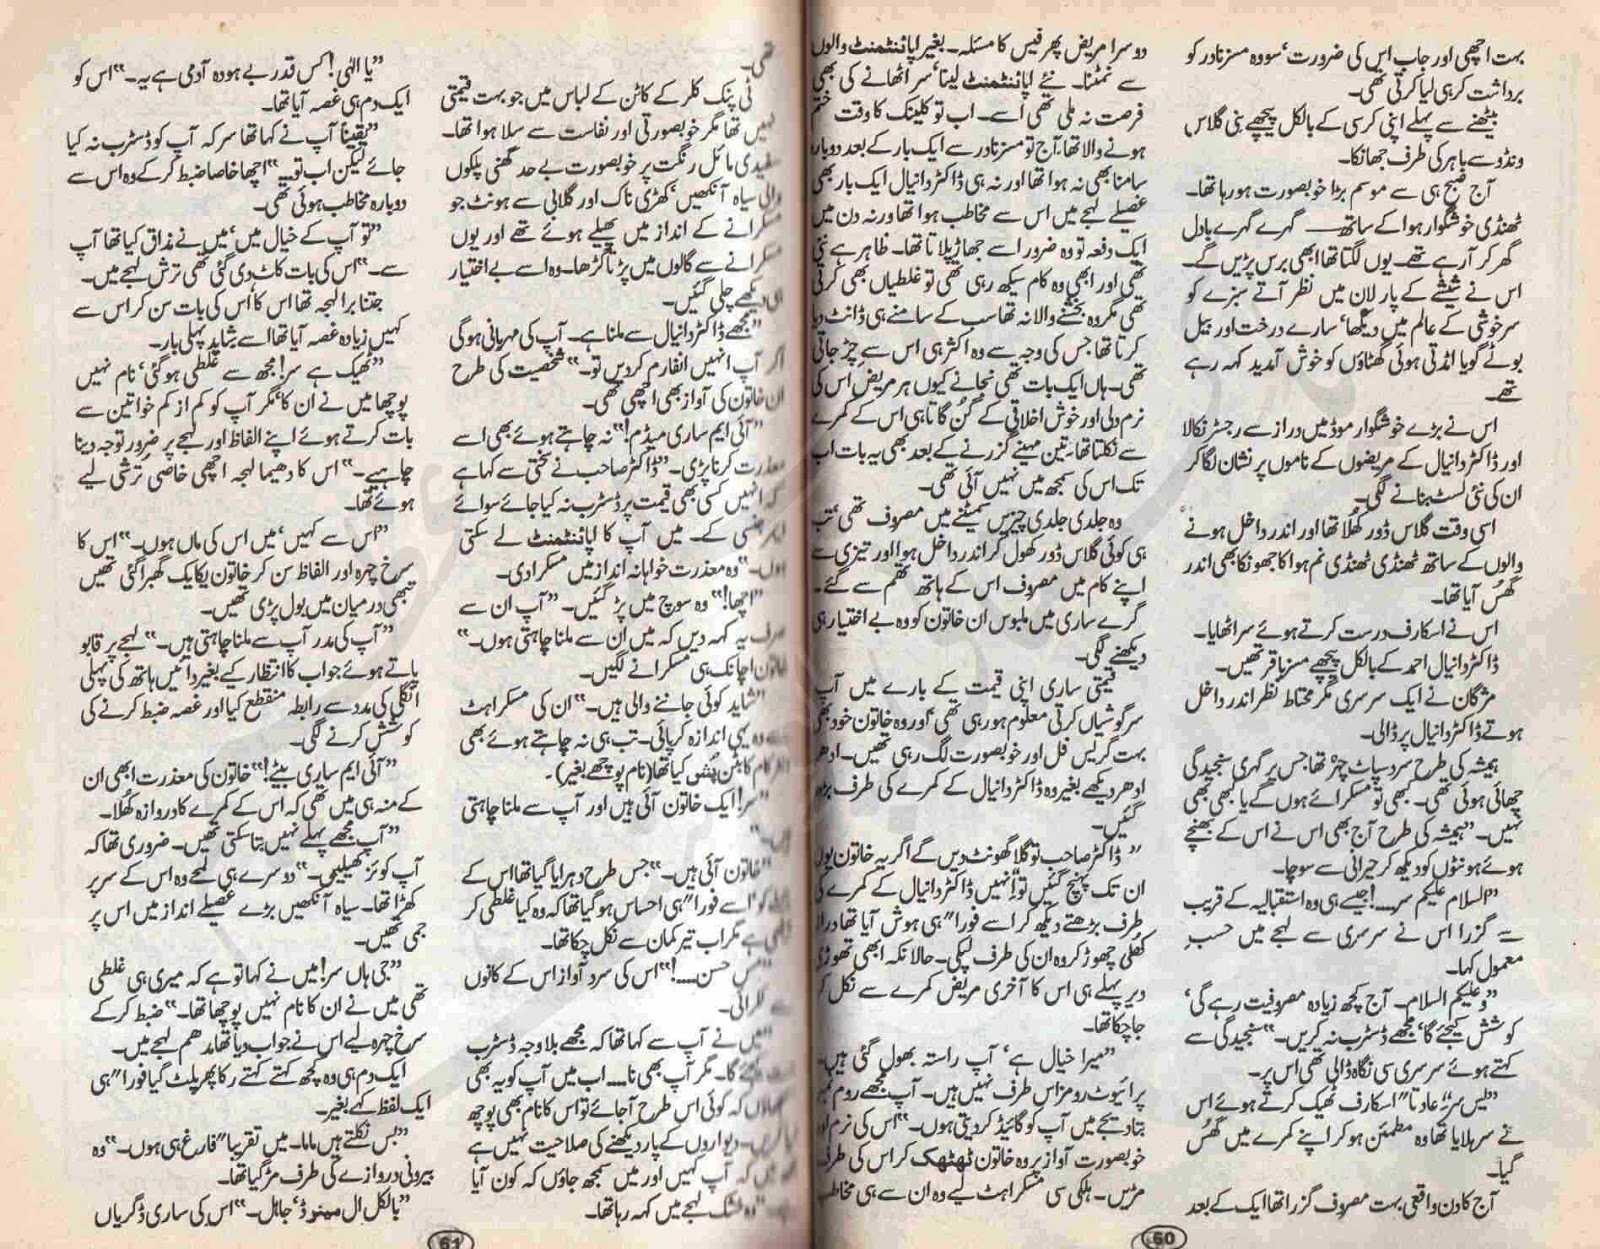 بہت اچھی اور جاب اس کی ضرورت‘ سو وہ مسز نادر کو
برداشت کر ہی لیا کرتی تھی۔
بیٹھنے سے پہلے اپنی کرسی کے بالکل پیچھے بنی گلاس
ونڈو سے باہر کی طرف جھانکا۔
آج صبح ہی سے موسم بڑا خوبصورت ہو رہا تھا۔
ٹھنڈی خوشگوار ہوا کے ساتھ—— گہرے گہرے بادل
گھر کر آ رہے تھے۔ یوں لگتا تھا ابھی برس پڑیں گے۔
اس نے شیشے کے پار لان میں نظر آتے سبزے کو
سرخوشی کے عالم میں دیکھا‘ سارے درخت اور بیل
بوٹے گویا امڈتی ہوئی گھٹاؤں کو خوش آمدید کہہ رہے
تھے۔
اس نے بڑے خوشگوار موڈ میں دراز سے رجسٹر نکالا
اور ڈاکٹر دانیال کے مریضوں کے ناموں پر نشان لگا کر
ان کی نئی لسٹ بنانے لگی۔
اسی وقت گلاس ڈور کھلا تھا اور اندر داخل ہونے
والوں کے ساتھ ٹھنڈی ٹھنڈی نم ہوا کا جھونکا بھی اندر
گھس آیا تھا۔
اس نے اسکارف درست کرتے ہوئے سر اٹھایا۔
ڈاکٹر دانیال احمد کے بالکل پیچھے مسز باقر تھیں۔
مژگان نے ایک سرسری مگر محتاط نظر اندر داخل
ہوتے ڈاکٹر دانیال پر ڈالی۔
ہمیشہ کی طرح سرد سپاٹ چہرہ تھا جس پر گہری سنجیدگی
چھائی ہوئی تھی۔ کبھی تو مسکرائے ہوں گے یا کبھی بھی
نہیں۔”ہمیشہ کی طرح آج بھی اس نے اس کے بھنچے
ہوئے ہونٹوں کو دیکھ کر حیرانی سے سوچا۔
”السلام علیکم سر....! جیسے ہی وہ استقبالیہ کے قریب
سے گزرا اس نے سرسری سے لہجے میں حسب
معمول کہا۔
”وعلیکم السلام۔ آج کچھ زیادہ مصروفیت رہے گی‘
کوشش کیجئے گا‘ مجھے ڈسٹرب نہ کریں۔“ سنجیدگی سے
کہتے ہوئے سرسری سی نگاہ ڈالی تھی اس پر۔
”یس سر“ عادتا” اسکارف ٹھیک کرتے ہوئے اس
نے سر ہلایا تھا وہ مطمئن ہو کر اپنے کمرے میں گھس
گیا۔
آج کا دن واقعی بہت مصروف گزرا تھا ایک کے بعد
دوسرا مریض پھر فیس کا مسئلہ۔ بغیر اپائنٹمنٹ والوں
سے نمٹنا۔ نئے اپائنٹمنٹ لینا‘ سر اٹھانے کی بھی
فرصت نہ ملی تھی اسے۔ اب تو کلینک کا وقت ختم
ہونے والا تھا‘ آج تو مسز نادر سے ایک بار کے بعد دوبارہ
سامنا بھی نہ ہوا تھا اور نہ ہی ڈاکٹر دانیال ایک بار بھی
غصیلے لہجے میں اس سے مخاطب ہوا تھا ورنہ دن میں
ایک دفعہ تو وہ ضرور اسے جھاڑ پلاتا تھا۔ ظاہر ہے نئی
تھی اور ابھی وہ کام سیکھ رہی تھی تو غلطیاں بھی کرتی
تھی مگر وہ بخشنے والا نہ تھا سب کے سامنے ہی ڈانٹ دیا
کرتا تھا جس کی وجہ سے وہ اکثر ہی اس سے چڑ جاتی
تھی۔ ہاں ایک بات تھی نجانے کیوں ہر مریض اس کی
نرم دلی اور خوش اخلاقی کے گن گاتا ہی اس کے کمرے
سے نکلتا تھا‘ تین مہینے گزرنے کے بعد بھی یہ بات اب
تک اس کی سمجھ میں نہیں آئی تھی۔
وہ جلدی جلدی چیزیں سمیٹنے میں مصروف تھی‘ تب
ہی کوئی گلاس ڈور کھول کر اندر داخل ہوا اور تیزی سے
اپنے کام میں مصروف اس کے ہاتھ تھم سے گئے۔
گرے ساری میں ملبوس ان خاتون کو وہ بے اختیار ہی
دیکھنے لگی۔
قیمتی ساری اپنی قیمت کے بارے میں آپ
سرگوشیاں کرتی معلوم ہو رہی تھی‘ اور وہ خاتون خود بھی
بہت گریس فل اور خوبصورت لگ رہی تھیں۔ ادھر
ادھر دیکھے بغیر وہ ڈاکٹر دانیال کے کمرے کی طرف بڑھ
گئیں۔
”ڈاکٹر صاحب تو گلا گھونٹ دیں گے اگر یہ خاتون یوں
ان تک پہنچ گئیں تو“ انہیں ڈاکٹر دانیال کے کمرے کی
طرف بڑھتے دیکھ کر اسے فورا” ہی ہوش آیا تھا دراز
کھلی چھوڑ کر وہ ان کی طرف لپکی۔ حالانکہ ابھی تھوڑی
دیر پہلے ہی اس کا آخری مریض کمرے سے نکل کر
جا چکا تھا۔
”میرا خیال ہے‘ آپ راستہ بھول گئی ہیں۔
پرائیوٹ رومز اس طرف نہیں ہیں۔ آپ مجھے روم نمبر
بتا دیجے میں آپ کو گائیڈ کر دیتی ہوں۔“ اس کی نرم اور
خوبصورت آواز پر وہ خاتون ٹھٹھک کر اس کی طرف
مڑیں۔ ہلکی سی مسکراہٹ لیے وہ ان سے ہی مخاطب
60
تھی۔
ٹی پنک کلر کے کاٹن کے لباس میں جو بہت قیمتی
نہیں تھا مگر خوبصورتی اور نفاست سے سلا ہوا تھا۔
سفیدی مائل رنگت پر خوبصورت بے حد گھنی پلکوں
والی سیاہ آنکھیں‘ کھڑی ناک اور گلابی سے ہونٹ جو
مسکرانے کے انداز میں پھیلے ہوئے تھے اور یوں
مسکرانے سے گالوں میں پڑتا گڑھا۔ وہ اسے بے اختیار
ہی دیکھے چلی گئیں۔
”مجھے ڈاکٹر دانیال سے ملنا ہے۔ آپ کی مہربانی ہو گی
اگر آپ انہیں انفارم کر دیں تو۔“ شخصیت کی طرح
ان خاتون کی آواز بھی اچھی تھی۔
”آئی ایم ساری میڈم!“ نہ چاہتے ہوئے بھی اسے
معذرت کرنا پڑی۔ ”ڈاکٹر صاحب نے سختی سے کہا ہے
کہ انہیں کسی بھی قیمت پر ڈسٹرب نہ کیا جائے سوائے
ایمرجنسی کے۔ میں آپ کا اپائنٹمنٹ لے سکتی
ہوں۔“ وہ معذرت خواہانہ انداز میں مسکرا دی۔
”اچھا!“ وہ سوچ میں پڑ گئیں۔ ”آپ ان سے
صرف یہ کہہ دیں کہ میں ان سے ملنا چاہتی ہوں۔“
خاتون اچانک ہی مسکرانے لگیں۔
”شاید کوئی جاننے والی ہیں۔“ ان کی مسکراہٹ
سے وہ یہی اندازہ کر پائی۔ تب ہی نہ چاہتے ہوئے بھی
انٹرکام کا بٹن پش کیا تھا (نام پوچھے بغیر)۔
”سر! ایک خاتون آئی ہیں اور آپ سے ملنا چاہتی
ہیں۔“
”خاتون آئی ہیں۔“ جس طرح دہرایا گیا تھا اس کے
لفظ کو‘ اسے فورا” ہی احساس ہو گیا تھا کہ وہ کیا غلطی کر
گئی ہے مگر اب تیر کمان سے نکل چکا تھا۔
”مس حسن....!“ اس کی سرد آواز اس کے کانوں
سے ٹکرائی۔
”میں نے آپ سے کہا تھا کہ مجھے بلاوجہ ڈسٹرب
نہ کیجئے گا۔ مگر آپ بھی نا.... اب میں آپ کو یہ بھی
سمجھاؤں کہ کوئی اس طرح آ جائے تو اس کا نام بھی پوچھ
لیا کریں۔ دیواروں کے پار دیکھنے کی صلاحیت نہیں ہے
مجھ میں کہ آپ کہیں اور میں سمجھ جاؤں کہ کون آیا
ہے۔“ وہ خشک لہجے میں کہہ رہا تھا۔
”یا الٰہی! کس قدر بے ہودہ آدمی ہے یہ۔“ اس کو
ایک دم ہی غصہ آیا تھا۔
”یقینا“ آپ نے کہا تھا سر کہ آپ کو ڈسٹرب نہ کیا
جائے لیکن اب تو۔۔۔“ اچھا خاصا ضبط کر کے وہ اس سے
دوبارہ مخاطب ہوئی تھی۔
”تو آپ کے خیال میں‘ میں نے مذاق کیا تھا آپ
سے۔“ اس کی بات کاٹ دی گئی تھی ترش لہجے میں۔
جتنا برا لہجہ تھا اس کا‘ اس کی بات سن کر اس سے
کہیں زیادہ غصہ آیا تھا اسے شاید پہلی بار۔
”ٹھیک ہے سر! مجھ سے غلطی ہو گئی‘ نام نہیں
پوچھا میں نے ان کا‘ مگر آپ کو کم از کم خواتین سے
بات کرتے ہوئے اپنے الفاظ اور لہجے پر ضرور توجہ دینا
چاہیے۔“ اس کا دھیما لہجہ اچھی خاصی ترشی لیے
ہوئے تھا۔
”اس سے کہیں‘ میں اس کی ماں ہوں۔“ اس کا
سرخ چہرہ اور الفاظ سن کر خاتون یکایک گھبرا گئی تھیں
تبھی درمیان میں بول پڑی تھیں۔
”آپ کی مدر آپ سے ملنا چاہتی ہیں۔“ لہجے پر قابو
پاتے ہوئے جواب کا انتظار کیے بغیر دائیں ہاتھ کی پہلی
انگلی کی مدد سے رابطہ منقطع کیا اور غصہ ضبط کرنے کی
کوشش کرنے لگی۔
”آئی ایم ساری بیٹے!“ خاتون کی معذرت ابھی ان
کے منہ ہی میں تھی کہ اس کے کمرے کا دروازہ کھلا۔
”آپ مجھے پہلے نہیں بتا سکتی تھیں۔ ضروری تھا کہ
آپ کوئز کھیلیں۔“ دوسرے ہی لمحے وہ اس کے سر پر
کھڑا تھا۔ سیاہ آنکھیں بڑے غصیلے انداز میں اس پر
جمی تھیں۔
”جی ہاں سر! میں نے کہا تو ہے کہ میری ہی غلطی
تھی میں نے ان کا نام نہیں پوچھا تھا۔“ ضبط کر کے
سرخ چہرہ لیے اس نے جواب دیا تھا مدھم لہجے میں۔
ایک دم ہی وہ کچھ کہتے کہتے رکا پھر پلٹ گیا فورا” ہی
ایک لفظ کہے بغیر۔
”بس نکلتے ہیں ماما۔ میں تقریبا“ فارغ ہی ہوں۔“ وہ
بیرونی دروازے کی طرف مڑ گیا تھا۔
”بالکل ال مینرڈ‘ جاہل۔“ اس کی ساری ڈگریاں
61